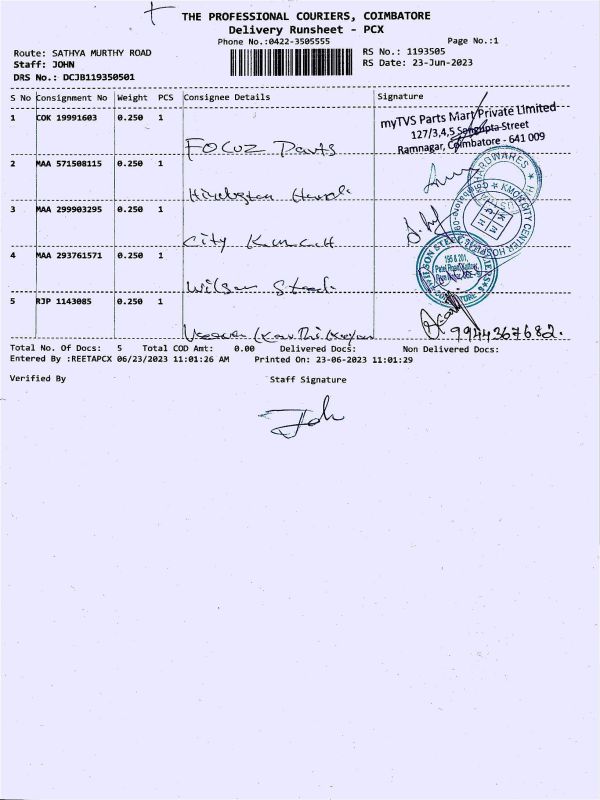 THE PROFESSIONAL COURIERS, COIMBATORE
Delivery Runsheet - PCX
Phone No.:0422-3505555 Page No.:1
Route: SATHYA MURTHY ROAD RS No.: 1193505
Staff: JOHN RS Date: 23-Jun-2023
DRS No.: DCJB119350501
S No Consignment No Weight PCS Consignee Details Signature
1 COK 19991603 0.250 1
myTVS Parts Mart Private Limited
127/3,4,5 Sengupta Street
Ramnagar, Coimbatore - 641 009
FOCUZ Parts
2 MAA 571508115 0.250 1
HARDWARES
3 MAA 299903295 0.250 1
City
KMCH CITY CENTER
4 MAA 293761571 0.250 1
Wilson Steels
5 RJP 1143085 0.250 1
9944367682.
Total No. Of Docs: 5 Total COD Amt: 0.00 Delivered Docs: Non Delivered Docs:
Entered By :REETAPCX 06/23/2023 11:01:26 AM Printed On: 23-06-2023 11:01:29
Verified By Staff Signature
Joh